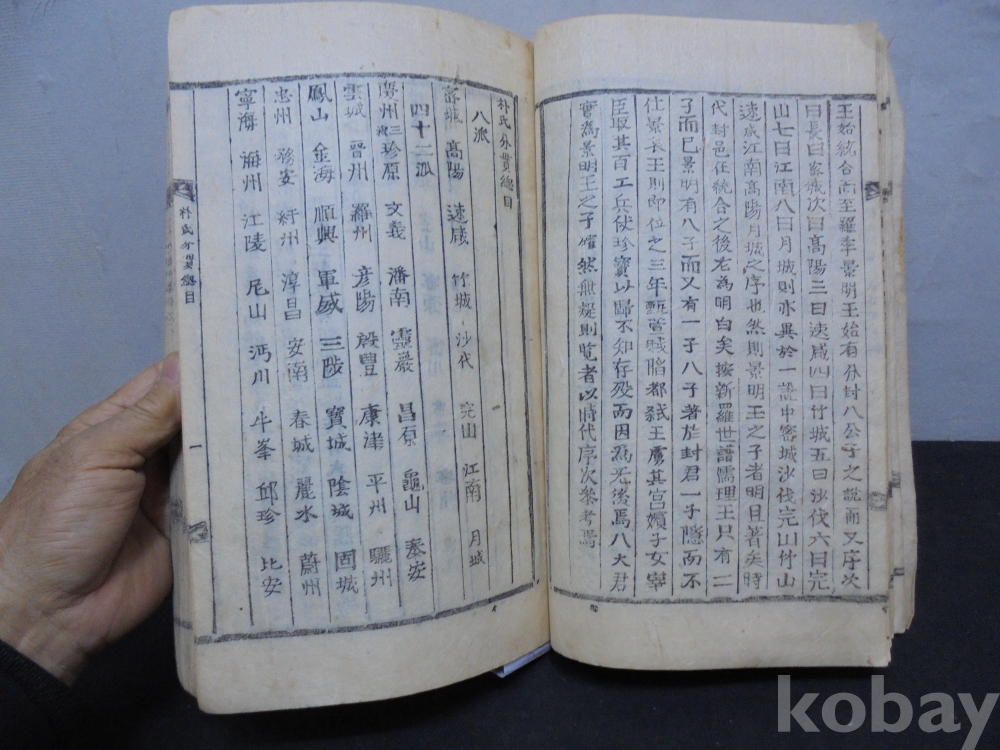 王始統合而至羅季景明王始有分封八公子之說而又序次
曰長曰密城次曰高陽三曰速咸四曰竹城五曰沙伐六曰完
山七曰江南八曰月城則亦異於一說中密城沙伐完山竹山
速咸江南高陽月城之序也然則景明王之子者明且著矣時
代封邑在統合之後尤為明白矣按新羅世譜儒理王只有二
子而已景明有八子而又有一子八子著於封君一子隱而不
仕景哀王則即位之三年甄萱賊陷都弒王虜其宮嬪子女宰
臣取其百工兵仗珍寶以歸不知存歿而因為无後焉八大君
實為景明王之子確然無疑則覽者以時代序次叅考焉
朴氏分貫總目
八派
密城 高陽 速咸 竹城 沙代 完山 江南 月城
四十二派
珍原 文義 潘南 靈巖 昌原 龜山 泰安
雲城 晉州 羅州 彦陽 殷豊 康津 平州 驪州
鳳山 金海 順興 軍威 三陟 寶城 陰城 固城
忠州 務安 紆州 淳昌 安南 春城 麗水 蔚州
寧海 海州 江陵 尼山 沔川 牛峯 邱珍 比安
朴氏分貫總目
一
kobay